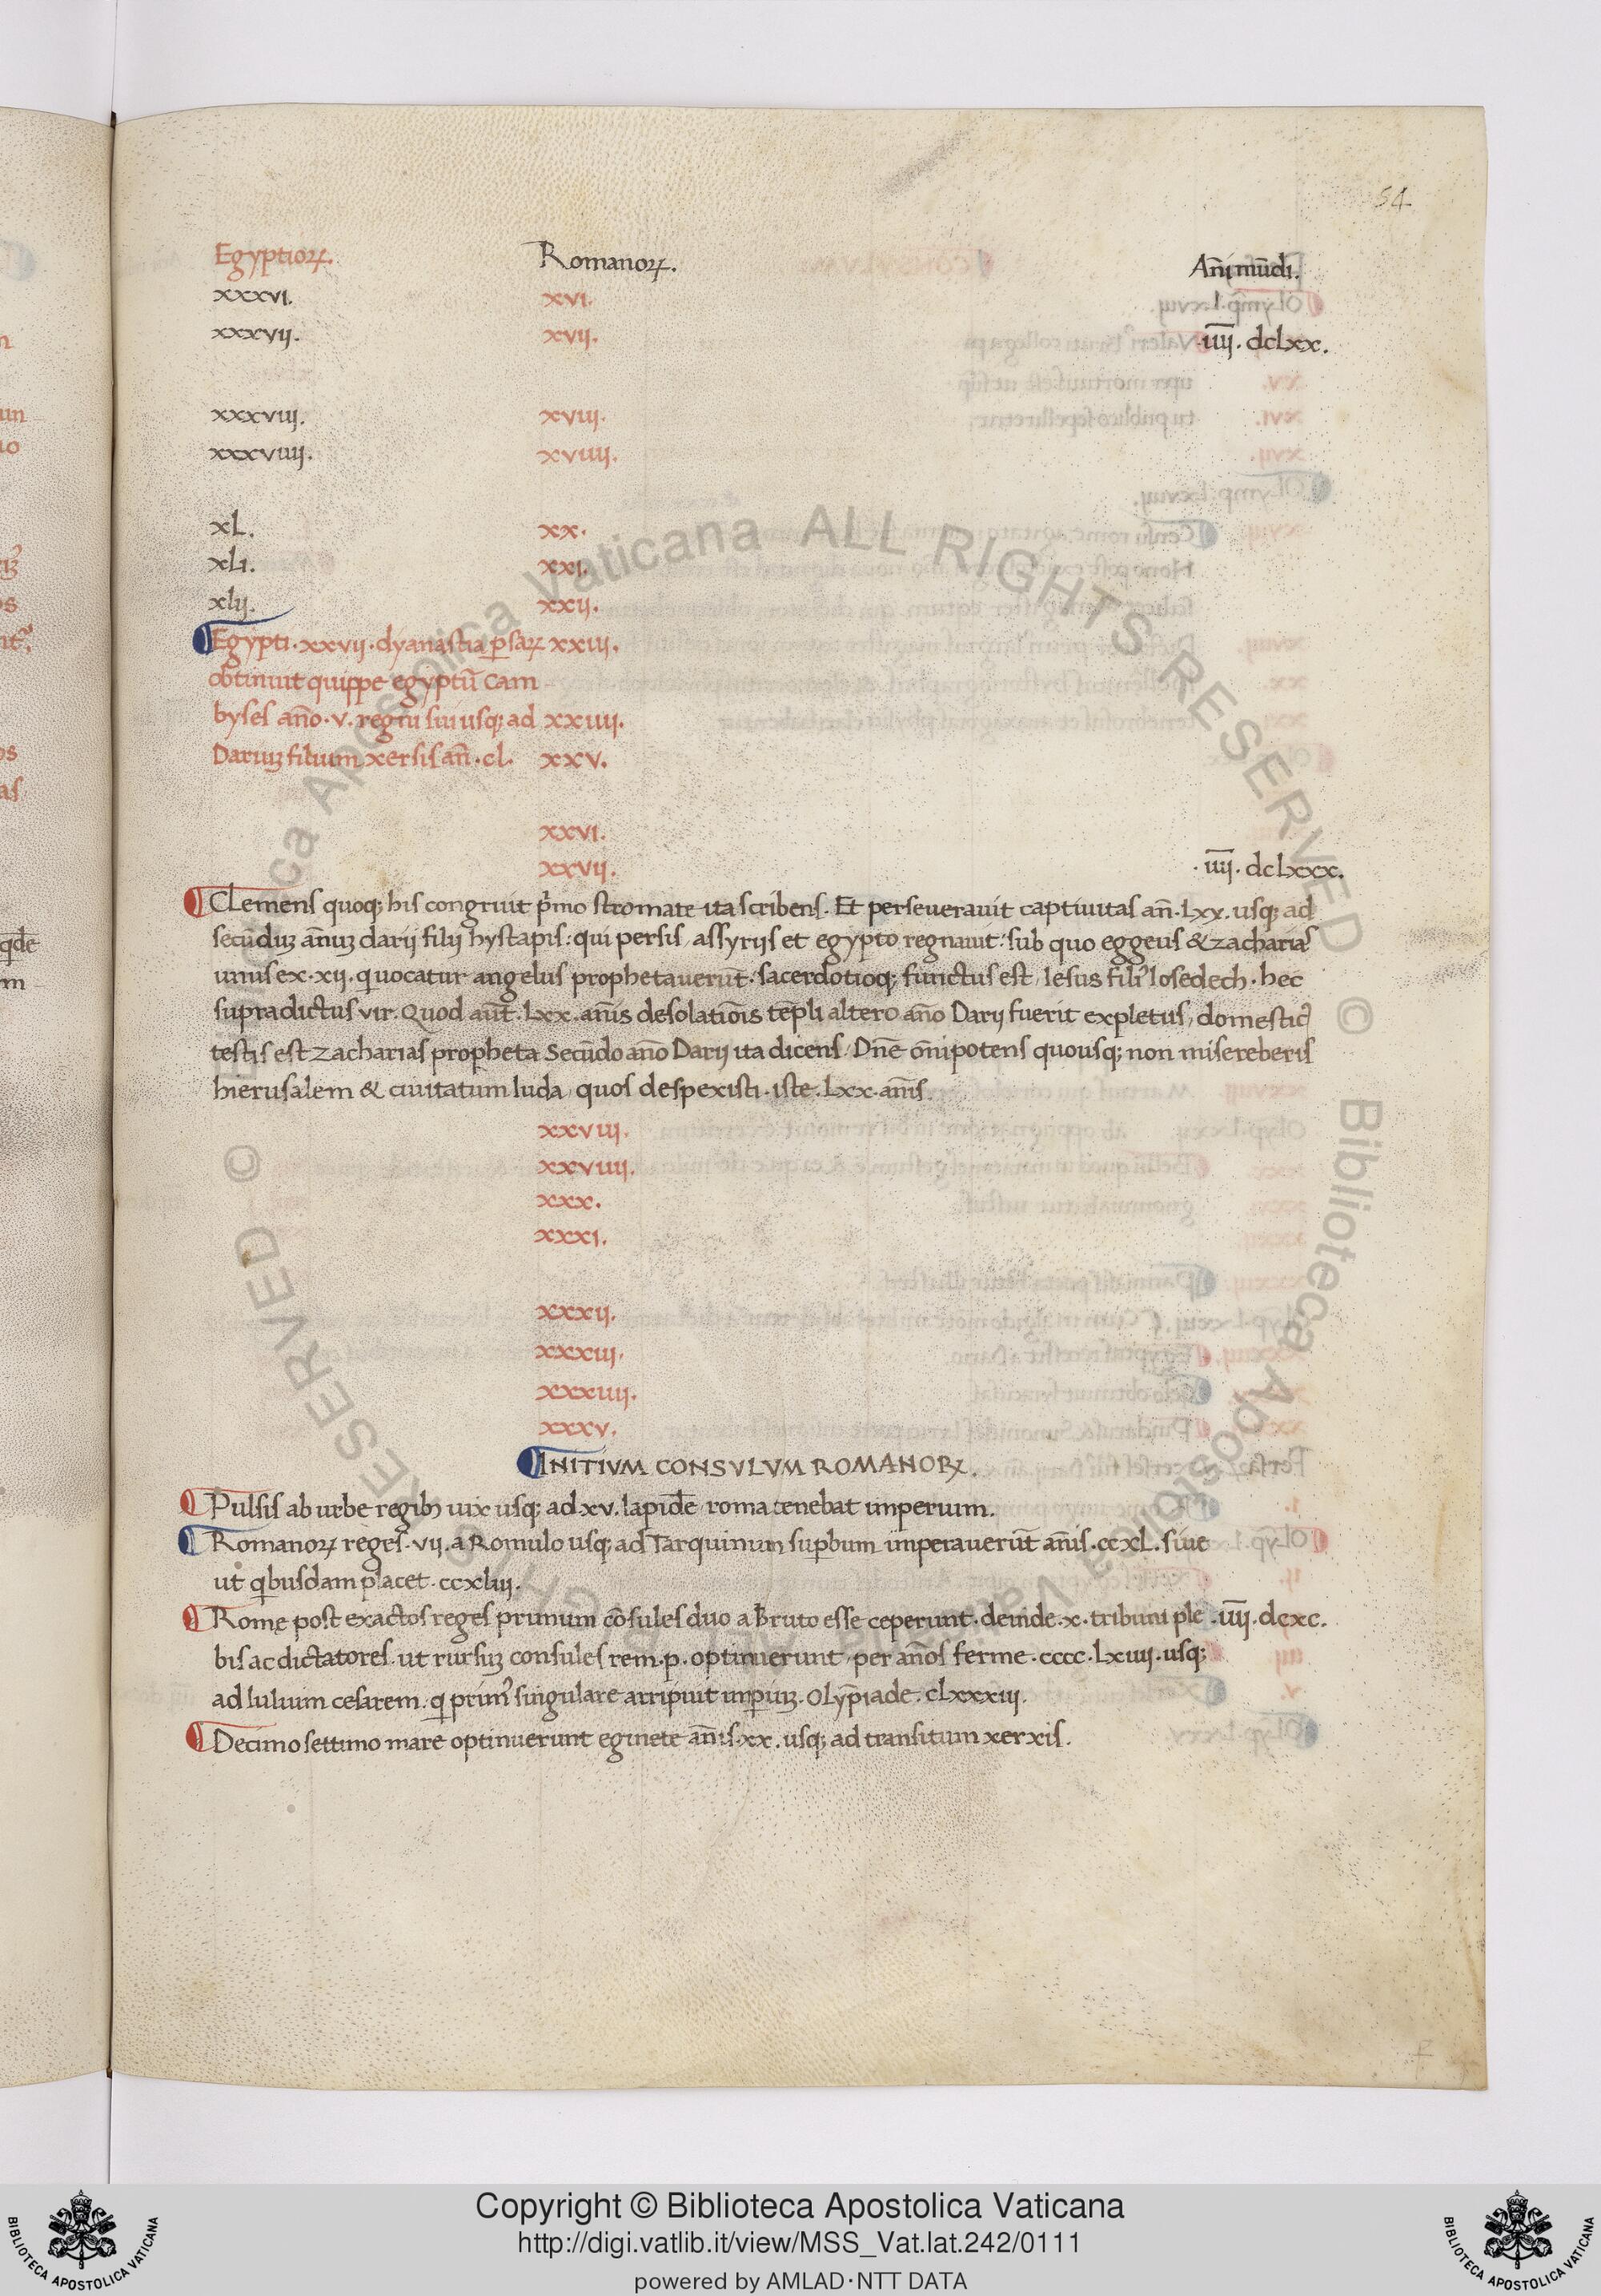 54
Egyptioꝝ. Romanoꝝ. An̄i mūdi.
xxxvi. xvi.
xxxvij. xvij. ·iiij̅. dclxx.
xxxviij. xviij.
xxxviiij. xviiij.
xl. xx.
xli. xxi.
xlij. xxij.
Egypti · xxvij · dyanastia ꝑsaꝝ xxiij.
obtinuit quippe egyptū Cam
byses an̄o · v. regni sui usq; ad xxiiij.
Dariuꝫ filium xersis an̄ · cl. xxv.
xxvi.
xxvij. · iiij̅. dclxxx.
Clemens quoq; his congruit p̄mo stromate ita scribens. Et perseuerauit captiuitas an̄. lxx. usq; ad
secūduꝫ an̄uꝫ darij filij hystapis: qui persis, assyrijs et egypto regnauit: sub quo eggeus & zacharias
unus ex · xij. quocatur angelus prophetauerūt: sacerdotioq; functus est, Iesus filiꝰ Iosedech · hec
supradictus vir. Quod aūt. lxx. an̄is desolatiōis tēpli altero an̄o Darij fuerit expletus, domesticꝰ
testis est zacharias propheta Secūdo an̄o Darij ita dicens, Dn̄e ōnipotens quousq; non misereberis
hierusalem & ciuitatum Iuda, quos despexisti · iste · lxx · an̄is.
xxviij.
xxviiij.
xxx.
xxxi.
xxxij.
xxxiij.
xxxiiij.
xxxv.
INITIVM CONSVLVM ROMANOꝝ.
Pulsis ab urbe regibꝫ uix usq; ad · xv. lapidē, roma tenebat imperium.
Romanoꝝ reges · vij. a Romulo usq; ad Tarquinum suꝑbum imperauerūt an̄is · ccxl. siue
ut qibusdam placet · ccxliij.
Romę post exactos reges primum cōsules duo a Bruto esse ceperunt · deinde · x · tribuni ple · iiij̅. dcxc.
bis ac dictatores. ut rursuꝫ consules rem · p. optinuerunt, per an̄os ferme · cccc · lxiiij. usq;
ad Iulium cesarem. qi primꝰ singulare arripuit imꝑiuꝫ. olyp̄iade. clxxxiij.
Decimo settimo mare optinuerunt eginete an̄is · xx. usq; ad transitum xerxis.
BIBLIOTECA APOSTOLICA VATICANA
Copyright © Biblioteca Apostolica Vaticana
http://digi.vatlib.it/view/MSS_Vat.lat.242/0111
powered by AMLAD·NTT DATA
BIBLIOTECA APOSTOLICA VATICANA